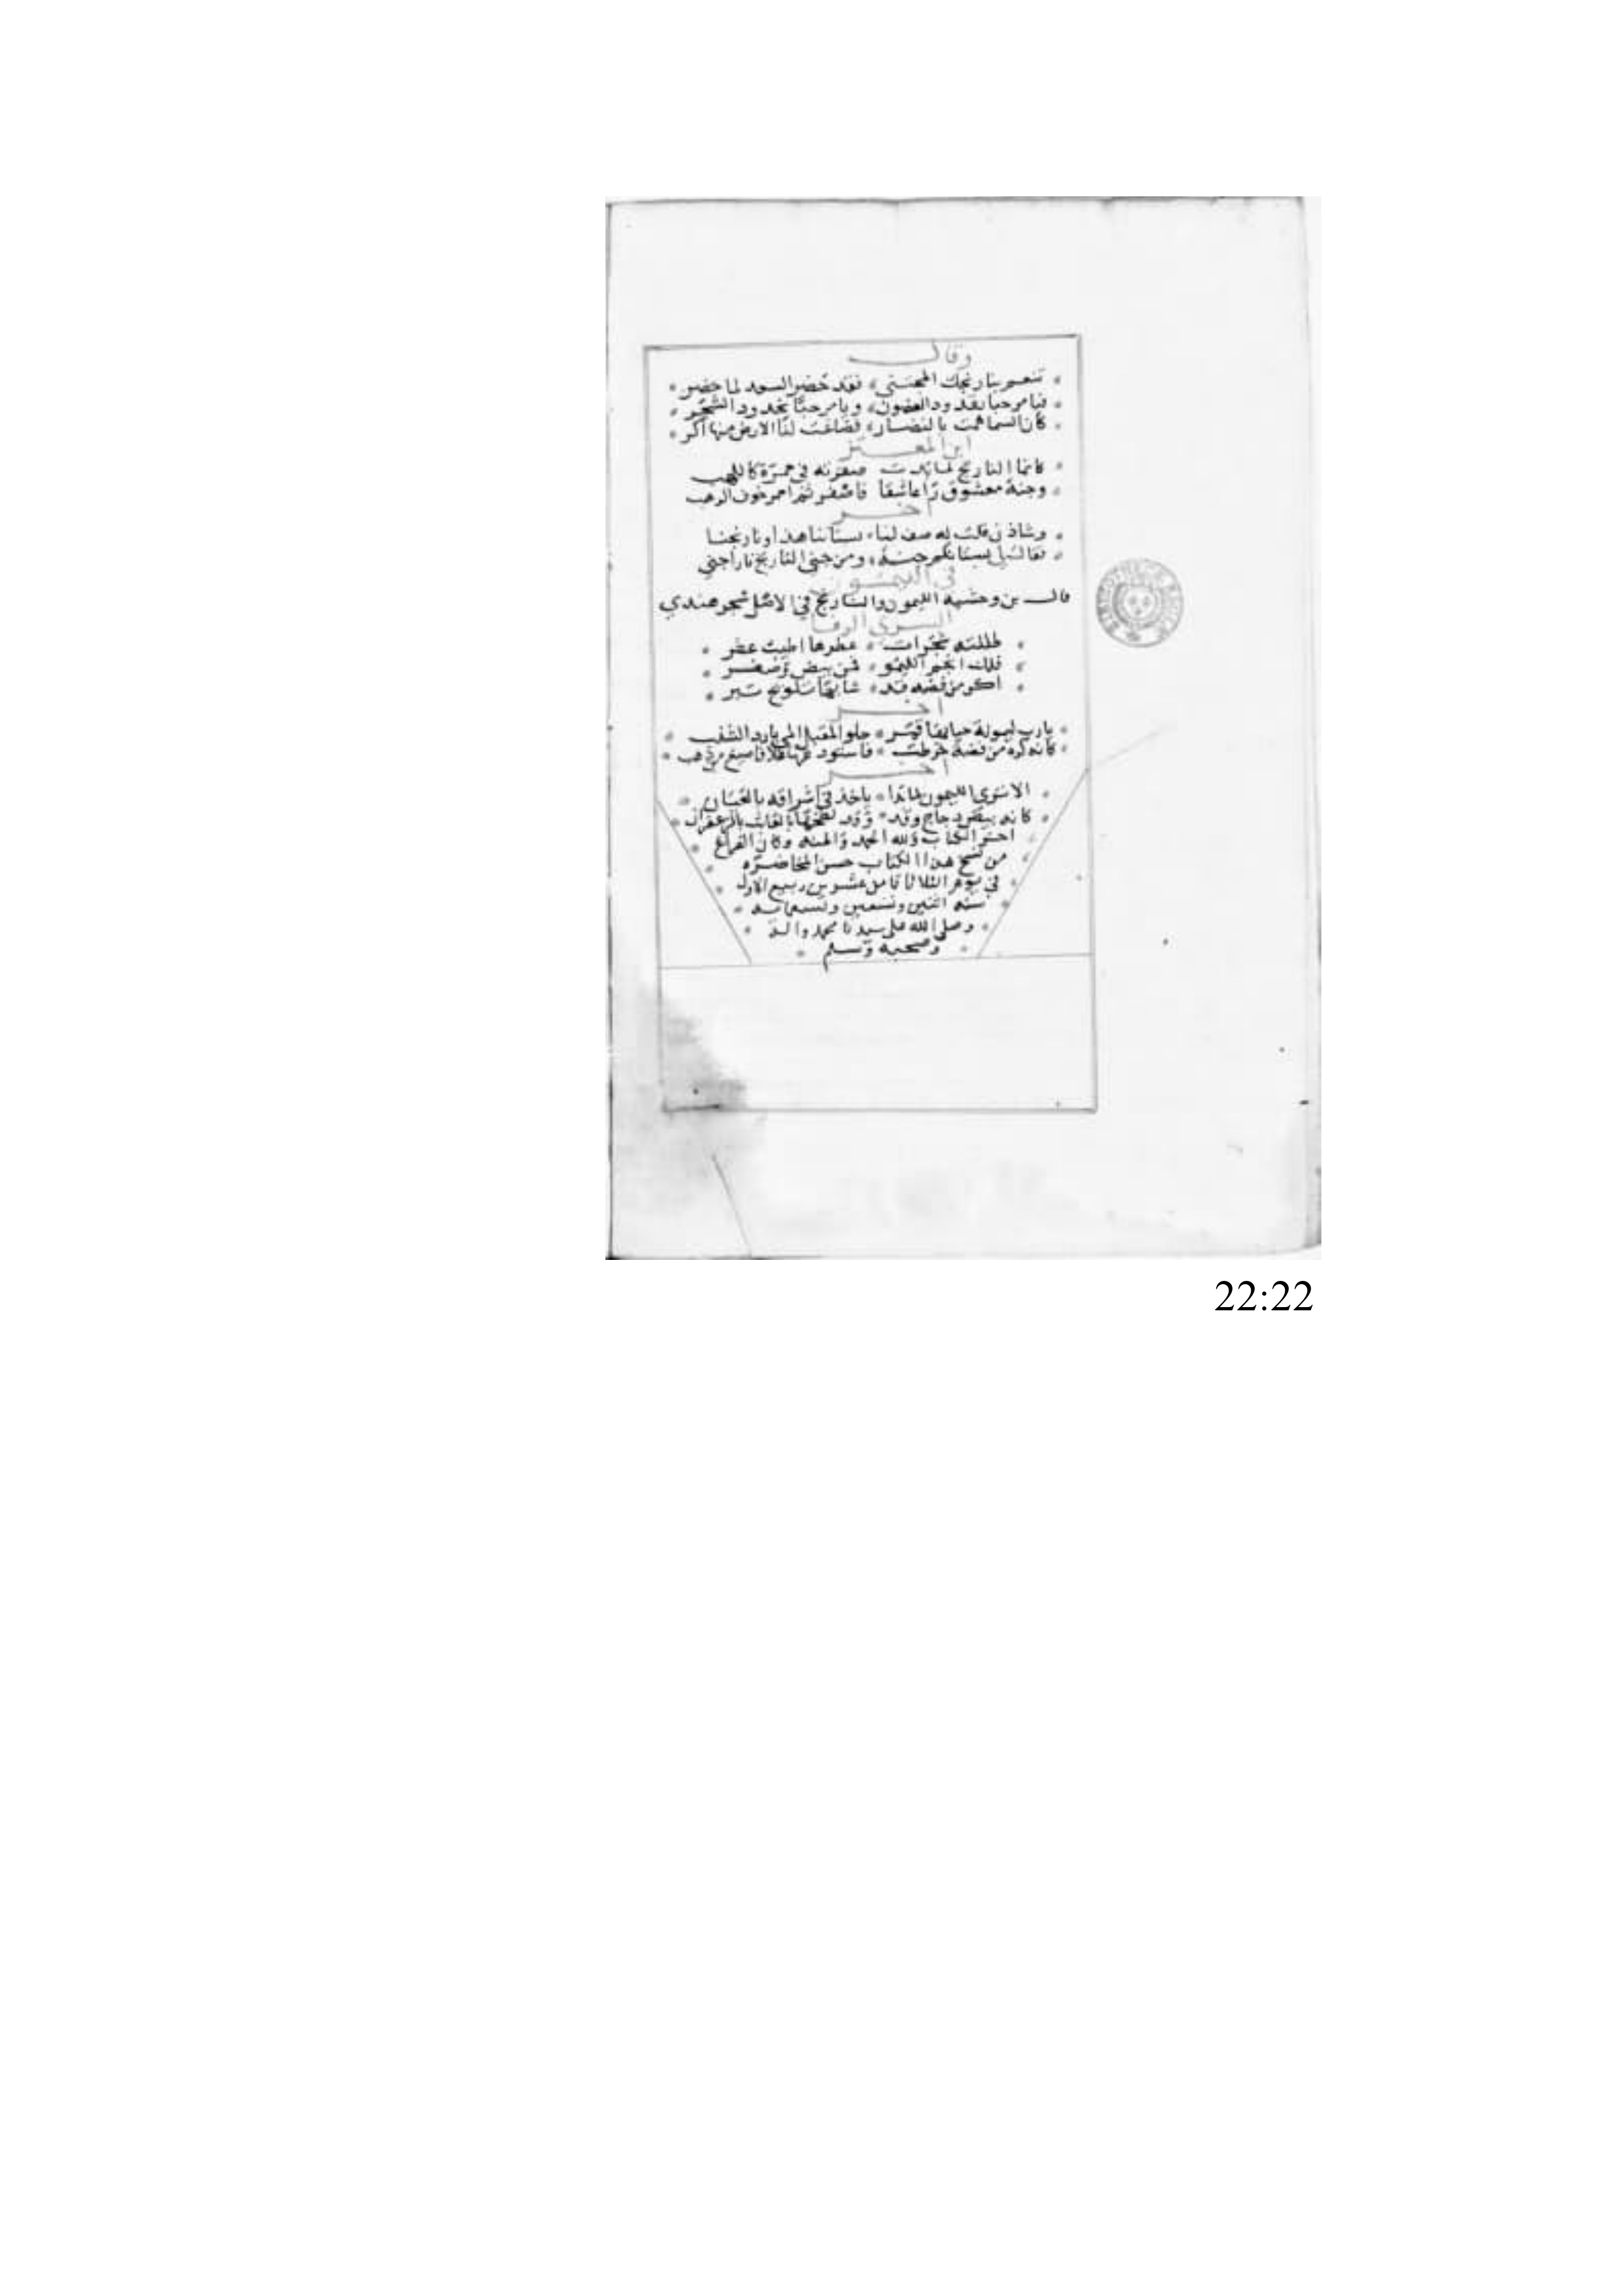 وقال
تنعم بنارنجك المجتنى فقد حضر السعد لما حضر
فيا مرحبا بقدود الغصون ويا مرحبا بخدود الشجر
كان السما همت بالنضار فصاغت لنا الارض منها اكر
ابن المعتز
كانما النارنج لما بدت صفرته في حمرة كاللهيب
وجنة معشوق راا عاشقا فاصفر ثم احمر خوف الرقيب
اخر
وشادن قلت له صف لنا بستاننا هذا ونارنجنا
فقال لي بستانكم جنة ومن جنى النارنج نارا جنى
في الليمون
قال بن وحشية الليمون والنارنج في الاصل شجر هندي
السري الرفا
ظللته شجرات عطرها اطيب عطر
فلك انجم الليمو فمن بيض وصفر
اكر من فضه قد شابها تلويح تبر
اخر
يارب ليمونة حيا بها قمر حلو المقبل المي بارد الشنب
كانه كرة من فضة خرطت فاستودعوها غلافا صيغ من ذهب
اخر
الا ترى الليمون لما بدا ياخذ في اشراقه بالعيان
كانه بيض دجاج وقد لطخها العابث بالزعفران
اخر الكتاب ولله الحمد والمنه وكان الفراغ
من نسخ هذا الكتاب حسن المحاضره
في يوم الثلاثا ثامن عشر من ربيع الاول
سنه اثنين وتسعين وتسعمايه
وصلى الله على سيدنا محمد واله
وصحبه وسلم
22:22